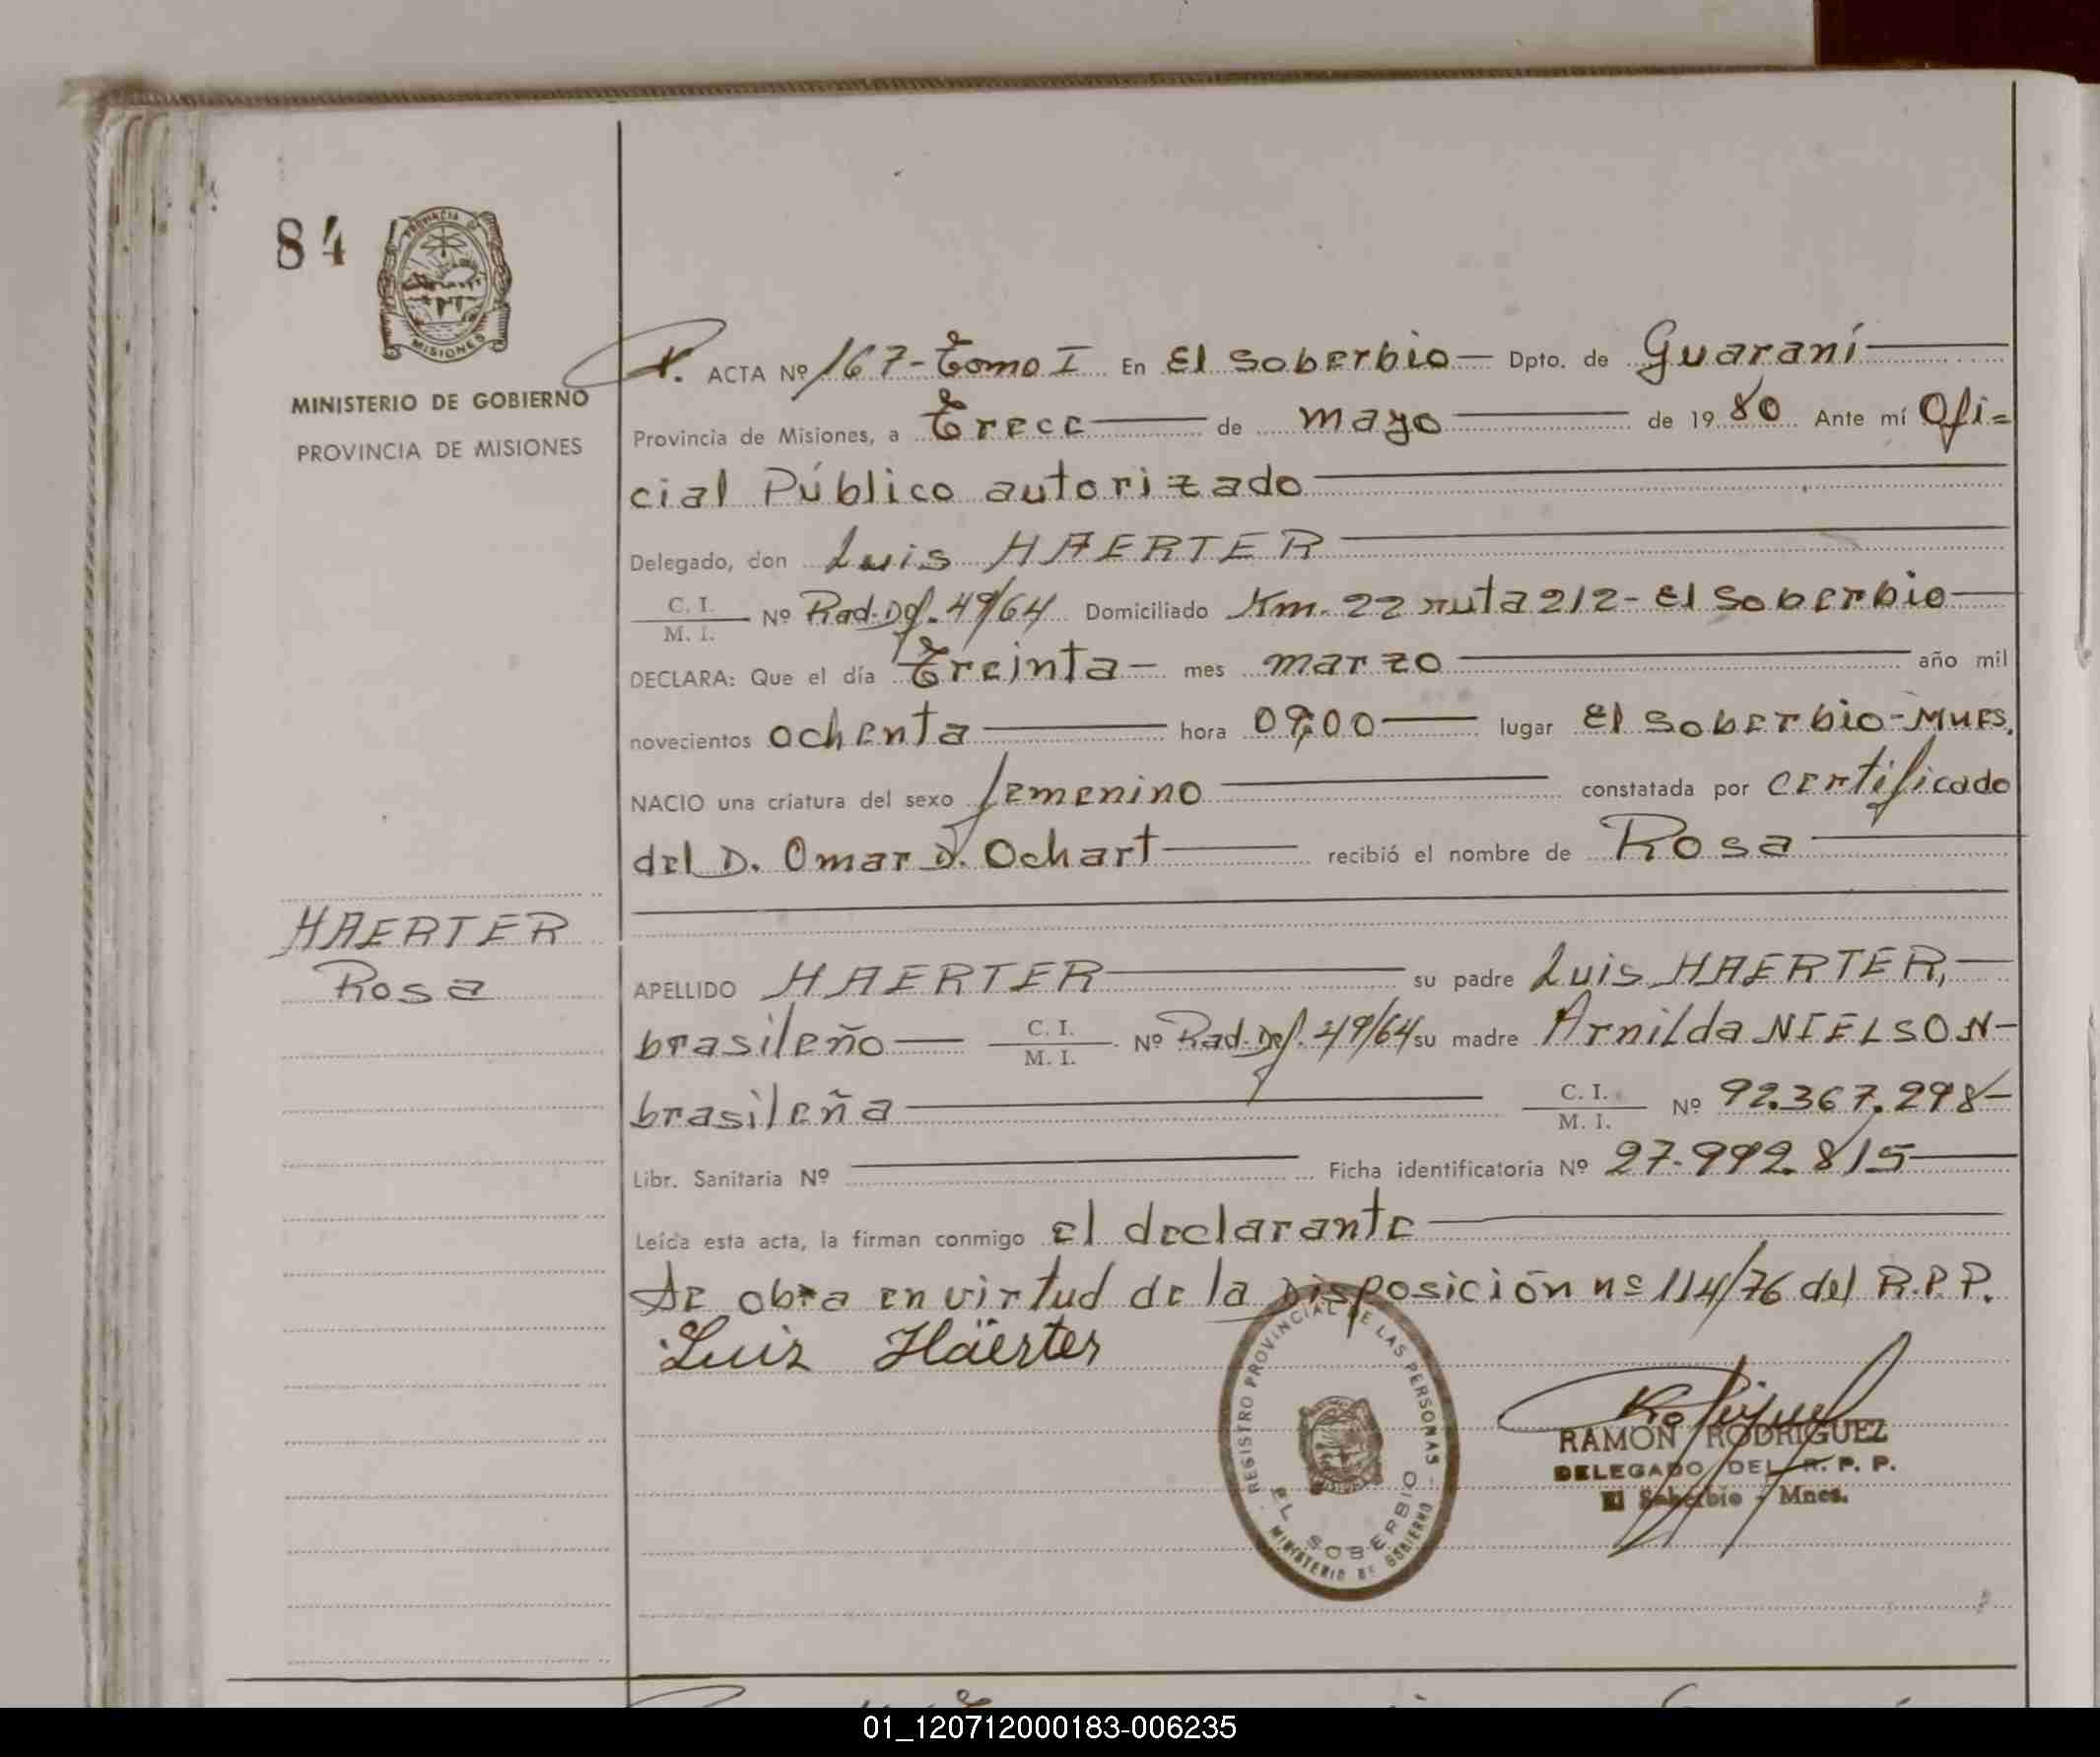 84
PROVINCIA DE
MISIONES
MINISTERIO DE GOBIERNO
PROVINCIA DE MISIONES
ACTA Nº 167-Tomo I En El Soberbio Dpto. de Guaraní
Provincia de Misiones, a Trece de mayo de 1980 Ante mí Ofi=
cial Público autorizado
Delegado, don Luis HAERTER
C. I. / M. I. Nº Rad. Def. 49/64 Domiciliado Km. 22 ruta 212 - El Soberbio
DECLARA: Que el día Treinta mes marzo año mil
novecientos ochenta hora 09,00 lugar El Soberbio-Mnes.
NACIO una criatura del sexo femenino constatada por certificado
del D. Omar D. Ochart recibió el nombre de Rosa
HAERTER
Rosa
APELLIDO HAERTER su padre Luis HAERTER,
brasileño C. I. / M. I. Nº Rad. Def. 49/64 su madre Arnilda NIELSON
brasileña C. I. / M. I. Nº 92.367.298
Libr. Sanitaria Nº Ficha identificatoria Nº 27.992.815
Leída esta acta, la firman conmigo el declarante
Se obra en virtud de la Disposición nº 114/76 del R.P.P.
Luis Häerter
REGISTRO PROVINCIAL DE LAS PERSONAS
EL SOBERBIO
MINISTERIO DE GOBIERNO
RAMON RODRIGUEZ
DELEGADO DEL R. P. P.
El Soberbio - Mnes.
01_120712000183-006235